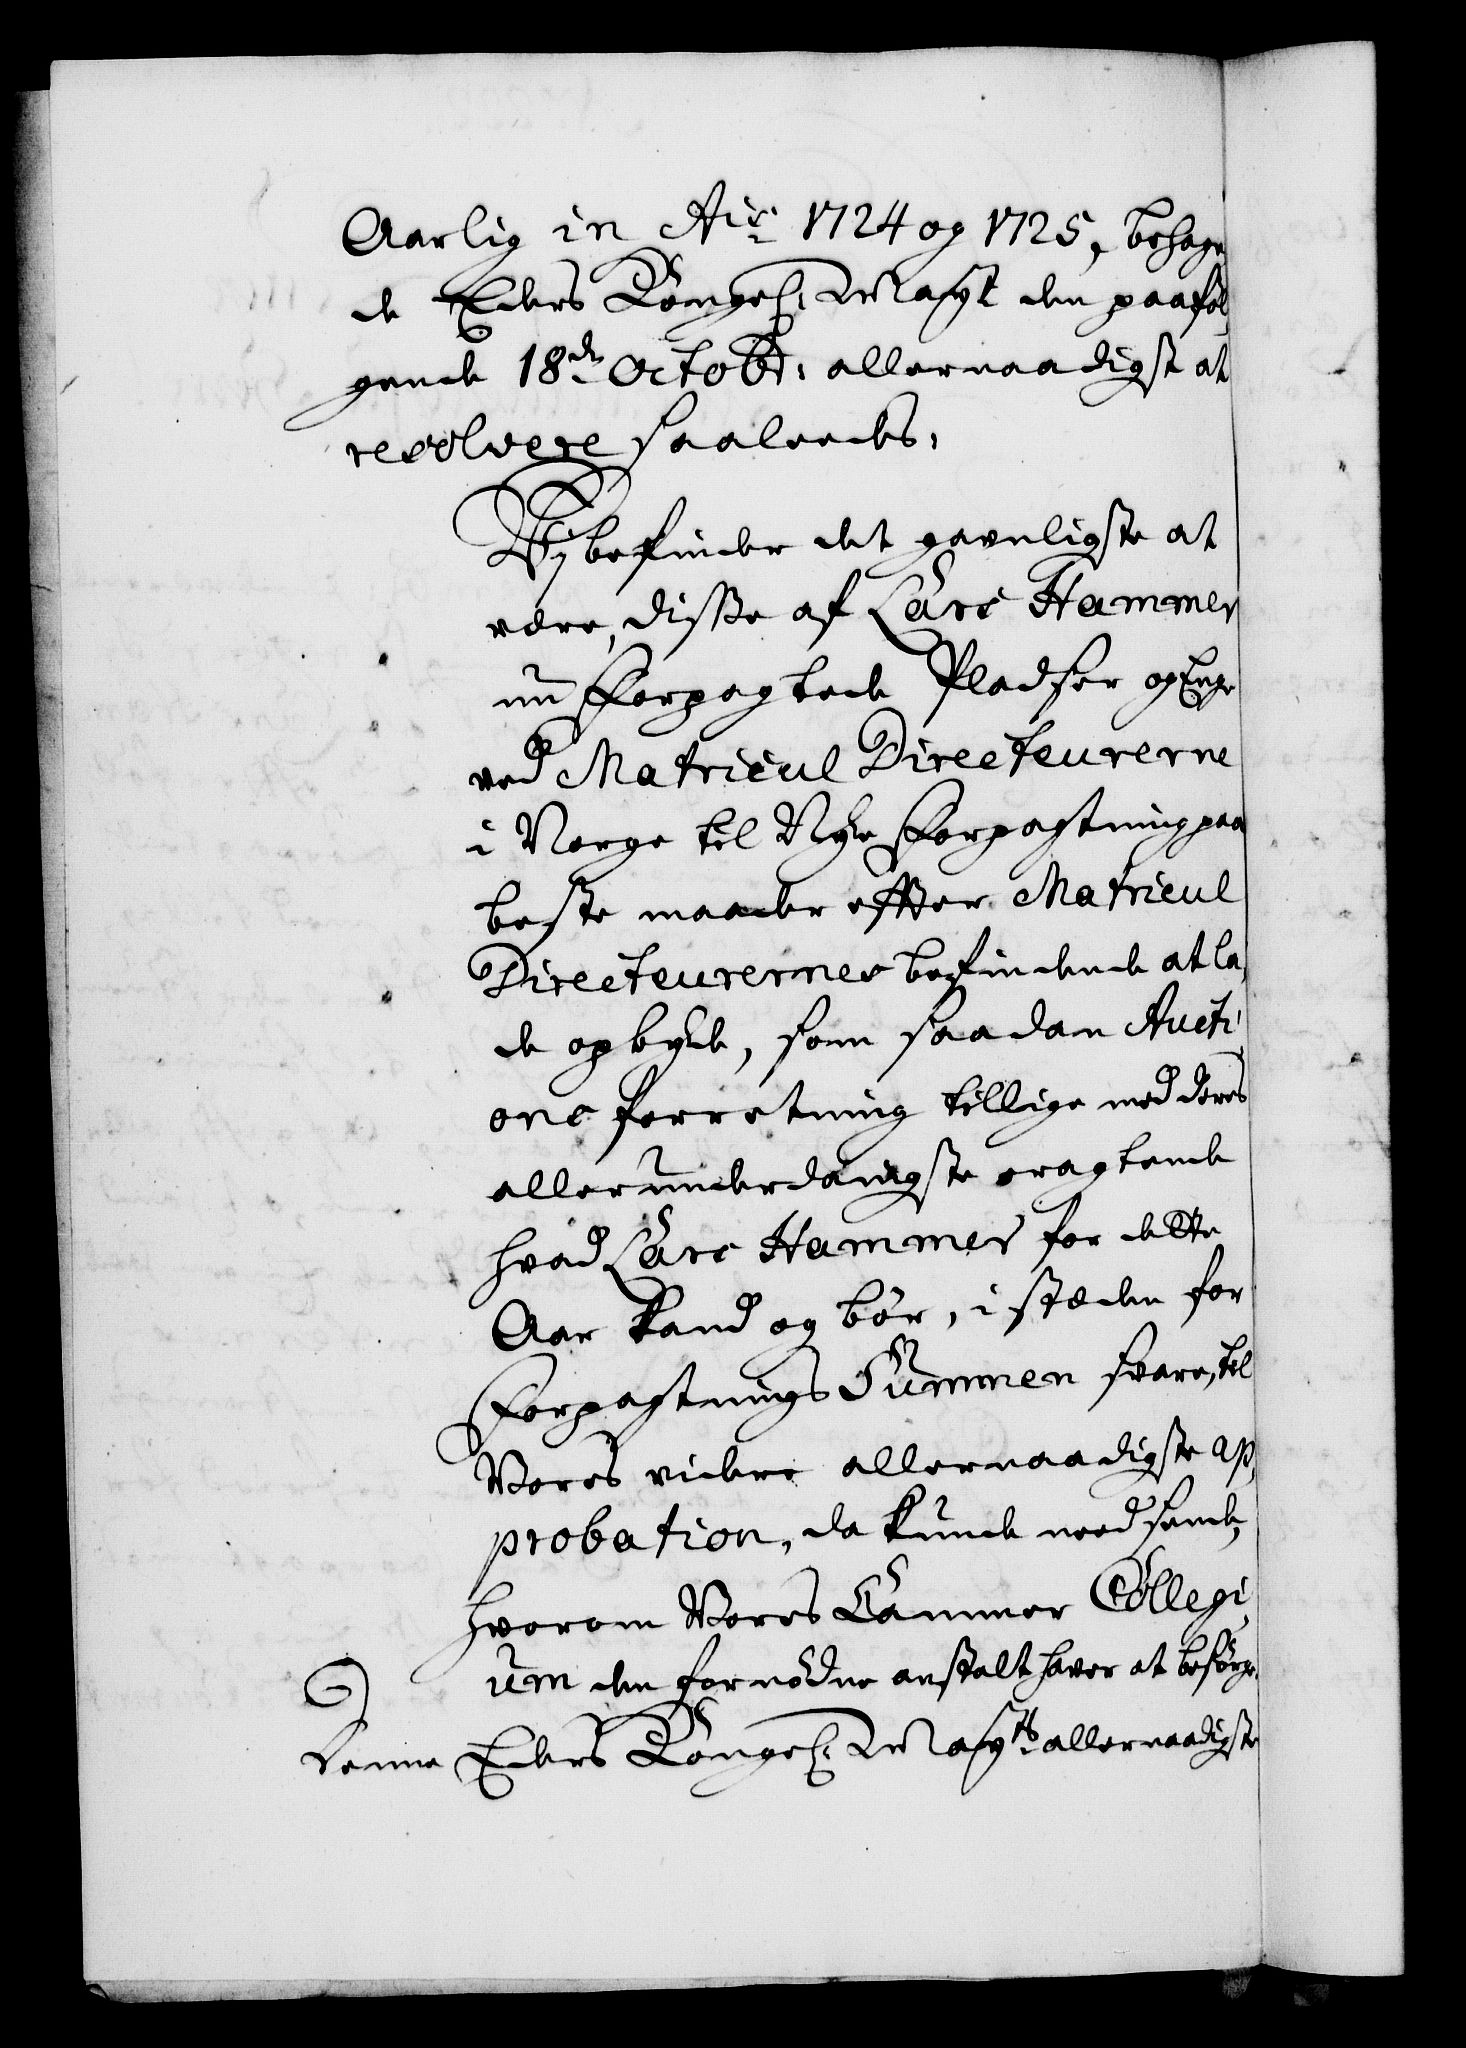 Aarlig in Ais: 1724 og 1725, behage
de Eders Kongel: Mayst den paaføl
gende 18de Octobr: allernaadigst at
resolvere saaleedes,
Vij befinder det gavnligste at
være, disse af Lars Hammer
nu Forpagtede Pladser og Enge
ved Matricul Directeurerne
i Norge til Nye Forpagtning paa
beste maader effter Matricul
Directeurernes befindende at la,
de opbyde, som saadan Aucti,
ons forretning tillige med deres
allerunderdanigste eragtende
hvad Lars Hammer for dette
Aar kand og bør, i steden for
Forpagtnings Summen svare, til
Vores videre allernaadigste ap,
probation, da kunde needsende,
hvorom Vores Cammer Collegi,
um den fornødne anstalt haver at besørge,
Denne Eders Kongel: Maysts: allernaadigste